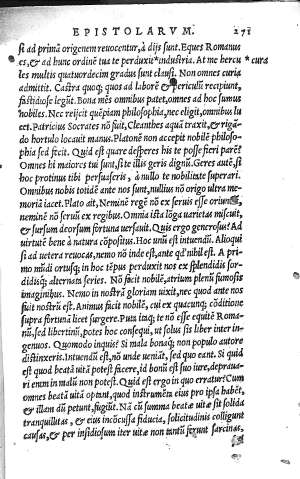 EPISTOLARVM. 271
si ad primā originem reuocentur, à dijs sunt. Eques Romanus
es, & ad hunc ordinē tua te perduxit industria. At me hercu
cura
les multis quatuordecim gradus sunt clausi. Non omnes curia
admittit. Castra quoq; quos ad laborē & periculū recipiunt,
fastidiose legūt. Bona mēs omnibus patet, omnes ad hoc sumus
nobiles. Nec reijcit quēpiam philosophia, nec eligit, omnibus lu
cet. Patricius Socrates nō fuit, Cleanthes aquā traxit, & rigā
do hortulo locauit manus. Platonē non accepit nobilē philoso-
phia sed fecit. Quid est quare desperes his te posse fieri parē?
Omnes hi maiores tui sunt, si te illis geris dignū. Geres autē, si
hoc protinus tibi persuaseris, à nullo te nobilitate superari.
Omnibus nobis totidē ante nos sunt, nullius nō origo ultra me-
moriā iacet. Plato ait, Neminē regē nō ex seruis esse oriundū,
neminē nō seruū ex regibus. Omnia ista lōga uarietas miscuit,
& sursum deorsum fortuna uersauit. Quis ergo generosus? Ad
uirtutē bene à natura cōpositus. Hoc unū est intuendū. Alioqui
si ad uetera reuocas, nemo nō inde est, ante qd' nihil est. A pri-
mo mūdi ortusq; in hoc tēpus perduxit nos ex splendidis sor-
didisq; alternata series. Nō facit nobilē, atrium plenū fumosis
imaginibus. Nemo in nostrā gloriam uixit, nec quod ante nos
fuit nostrū est. Animus facit nobilē, cui ex quacunq; cōditione
supra fortunā licet surgere. Puta itaq; te nō esse equitē Roma-
nū, sed libertinū, potes hoc consequi, ut solus sis liber inter in-
genuos. Quomodo inquis? Si mala bonaq; non populo autore
distinxeris. Intuendū est, nō unde ueniāt, sed quo eant. Si quid
est quod beatā uitā potest facere, id bonū est suo iure, deprauari
enim in malū non potest. Quid est ergo in quo erratur? Cum
omnes beatā uitā optant, quod instrumētū eius pro ipsa habēt,
& illam dū petunt, fugiūt. Nā cū summa beatæ uitæ sit solida
tranquillitas, & eius incōcussa fiducia, solicitudinis colligunt
causas, & per insidiosum iter uitæ non tantū ferunt sarcinas,